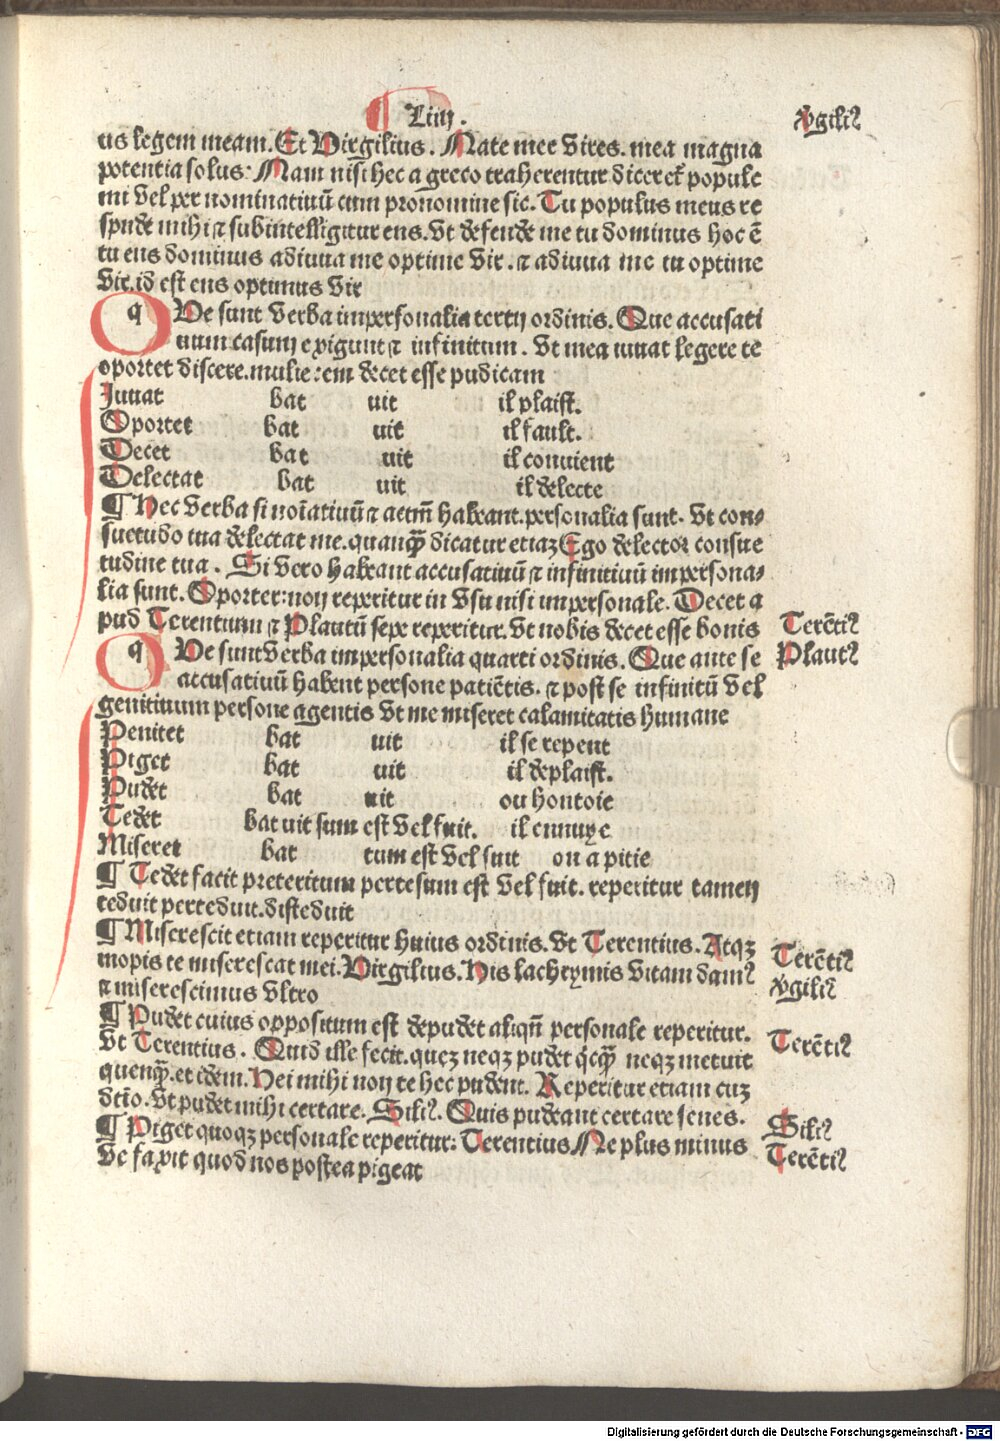 Liiij.
us legem meam. Et Virgilius. Nate mee vires. mea magna
potentia solus: Nam nisi hec a greco traherentur diceret̉ popule
mi vel per nominatiuū cum pronomine sic. Tu populus meus re
spnde mihi ⁊ subintelligitur ens. vt defende me tu dominus hoc ē
tu ens dominus adiuua me optime vir. ⁊ adiuua me tu optime
vir. id est ens optimus vir
q Ve sunt verba impersonalia tertij ordinis. Que accusati
uum casum exigunt ⁊ infinitum. vt mea iuuat legere te
oportet discere. mulierem decet esse pudicam
Juuat bat uit il plaist.
Oportet bat uit il fault.
Decet bat uit il conuient
Delectat bat uit il delecte
¶ Hec verba si noīatiuū ⁊ actm̄ habeant. personalia sunt. vt con⸗
suetudo tua delectat me. quanqꝫ̄ dicatur etiaꝫ Ego delector consue
tudine tua. Si vero habeant accusatiuū ⁊ infinitiuū impersona⸗
lia sunt. Oportet: non reperitur in vsu nisi impersonale. Decet a
pud Terentium ⁊ Plautū sepe reperitur. vt nobis decet esse bonis
q Ve sunt verba impersonalia quarti ordinis. Que ante se
accusatiuū habent persone patiētis. ⁊ post se infinitū vel
genitiuum persone agentis vt me miseret calamitatis humane
Penitet bat uit il se repent
Piget bat uit il deplaist.
Pudet bat uit ou hontoie
Tedet bat uit sum est vel fuit. il ennuye
Miseret bat tum est vel fuit on a pitie
¶ Tedet facit preteritum pertesum est vel fuit. reperitur tamen
teduit perteduit. disteduit
¶ Miserescit etiam reperitur huius ordinis. vt Terentius. Atqꝫ
inopis te miserescat mei. Virgilius. His lachrymis vitam damꝰ
⁊ miserescimus vltro
¶ Pudet cuius oppositum est depudet aliqn̄ personale reperitur.
vt Terentius. Quid ille fecit. queꝫ neqꝫ pudet q̇cqꝫ̄ neqꝫ metuit
quenqꝫ̄. et idem. Hei mihi non te hec pudent. Reperitur etiam cuꝫ
dtīo. vt pudet mihi certare. Siliꝰ. Quis pudeant certare senes.
¶ Piget quoqꝫ personale reperitur: Terentius Ne plus minus
ve faxit quod nos postea pigeat
Vgiliꝰ
Terētiꝰ
Plautꝰ
Terētiꝰ
Vgiliꝰ
Terētiꝰ
Siliꝰ
Terētiꝰ
Digitalisierung gefördert durch die Deutsche Forschungsgemeinschaft - DFG